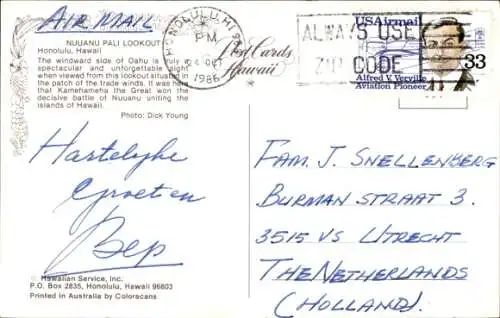 AIR MAIL
NUUANU PALI LOOKOUT
Honolulu, Hawaii
The windward side of Oahu is truly a
spectacular and unforgettable sight
when viewed from this lookout situated in
the patch of the trade winds. It was near
that Kamehameha the Great won the
decisive battle of Nuuanu uniting the
islands of Hawaii.
Photo: Dick Young
Hartelyke
Groeten
Bep
Hawaiian Service, Inc.
P.O. Box 2835, Honolulu, Hawaii 96803
Printed in Australia by Colorscans
HONOLULU, HI
PM
OCT
1986
Post Cards
Hawaii
ALWAYS USE
ZIP CODE
USAirmail
33
Alfred V. Verville
Aviation Pioneer
FAM. J. SNELLENBERG
BURMAN STRAAT 3.
3515 VS UTRECHT
THE NETHERLANDS
(HOLLAND).